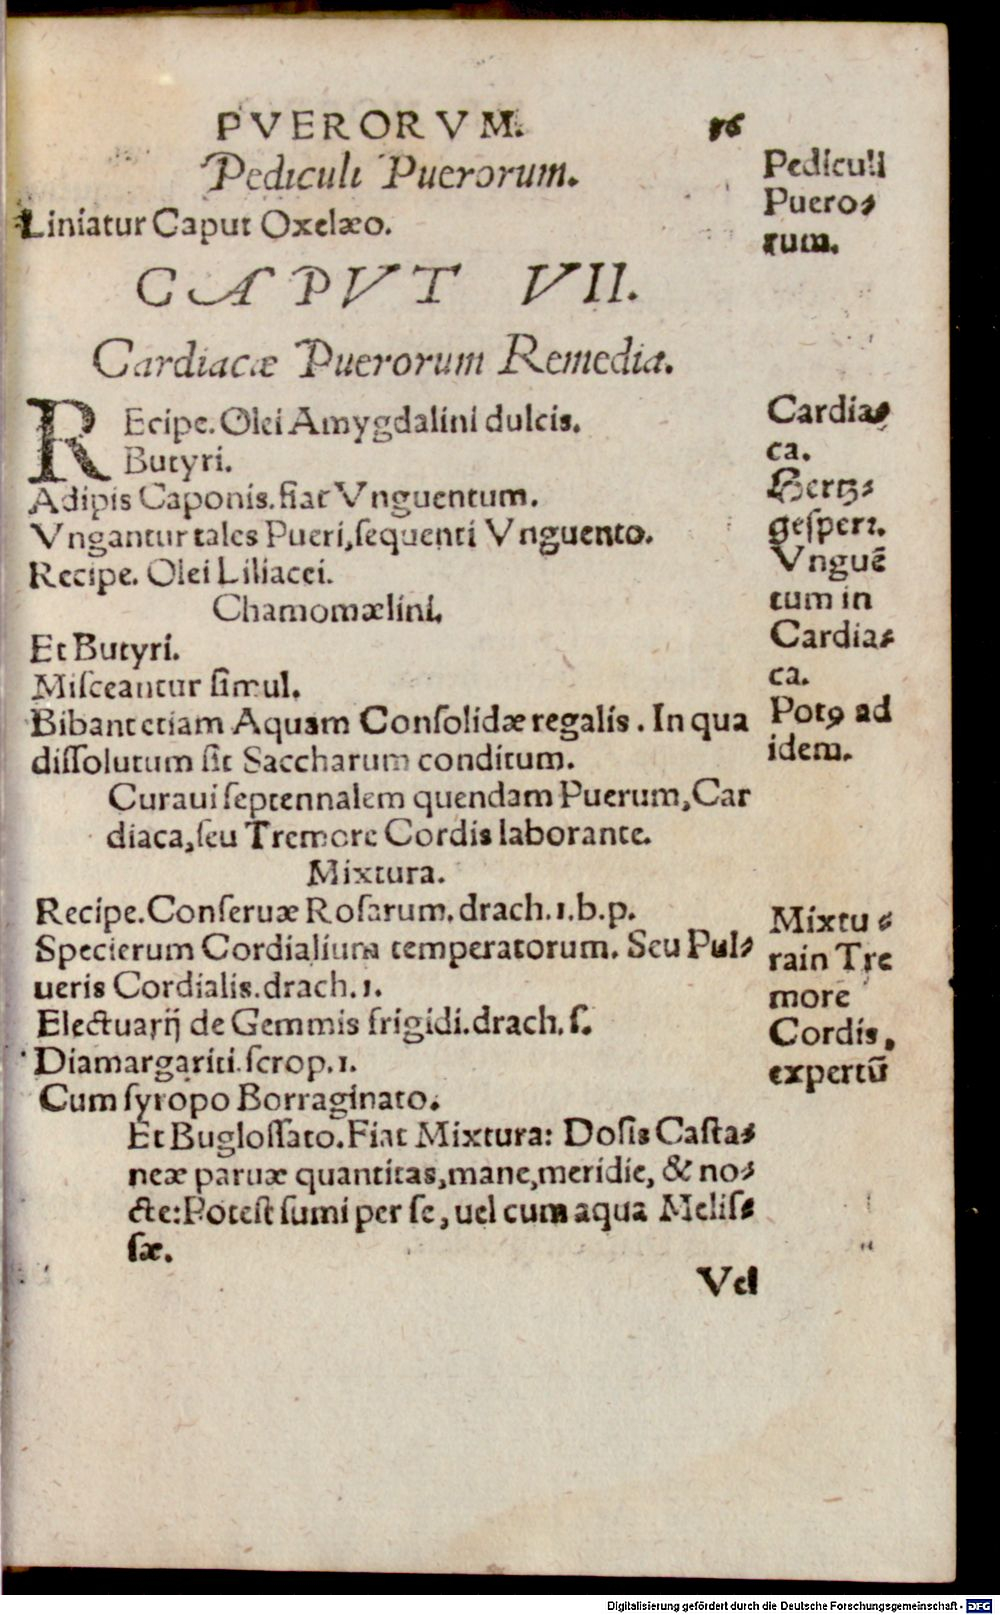 PVERORVM. 86
Pediculi Puerorum.
Liniatur Caput Oxelæo.
Pediculi
Puero⸗
rum.
CAPVT VII.
Cardiacæ Puerorum Remedia.
REcipe. Olei Amygdalini dulcis.
Butyri.
Adipis Caponis. fiat Vnguentum.
Vngantur tales Pueri, ſequenti Vnguento.
Recipe. Olei Liliacei.
Chamomælini.
Et Butyri.
Miſceantur ſimul.
Bibant etiam Aquam Conſolidæ regalis. In qua
diſſolutum ſit Saccharum conditum.
Cardia⸗
ca.
Hertz⸗
geſperr.
Vnguē
tum in
Cardia⸗
ca.
Potꝰ ad
idem.
Curaui ſeptennalem quendam Puerum, Car
diaca, ſeu Tremore Cordis laborante.
Mixtura.
Recipe. Conſeruæ Roſarum. drach. 1. b. p.
Specierum Cordialium temperatorum. Seu Pul⸗
ueris Cordialis. drach. 1.
Electuarij de Gemmis frigidi. drach. ſ.
Diamargariti. ſcrop. 1.
Cum ſyropo Borraginato.
Et Bugloſſato. Fiat Mixtura: Doſis Caſta⸗
neæ paruæ quantitas, mane, meridie, & no⸗
cte: Poteſt ſumi per ſe, uel cum aqua Meliſ⸗
ſæ.
Mixtu⸗
ra in Tre
more
Cordis,
expertū
Vel
Digitalisierung gefördert durch die Deutsche Forschungsgemeinschaft - DFG